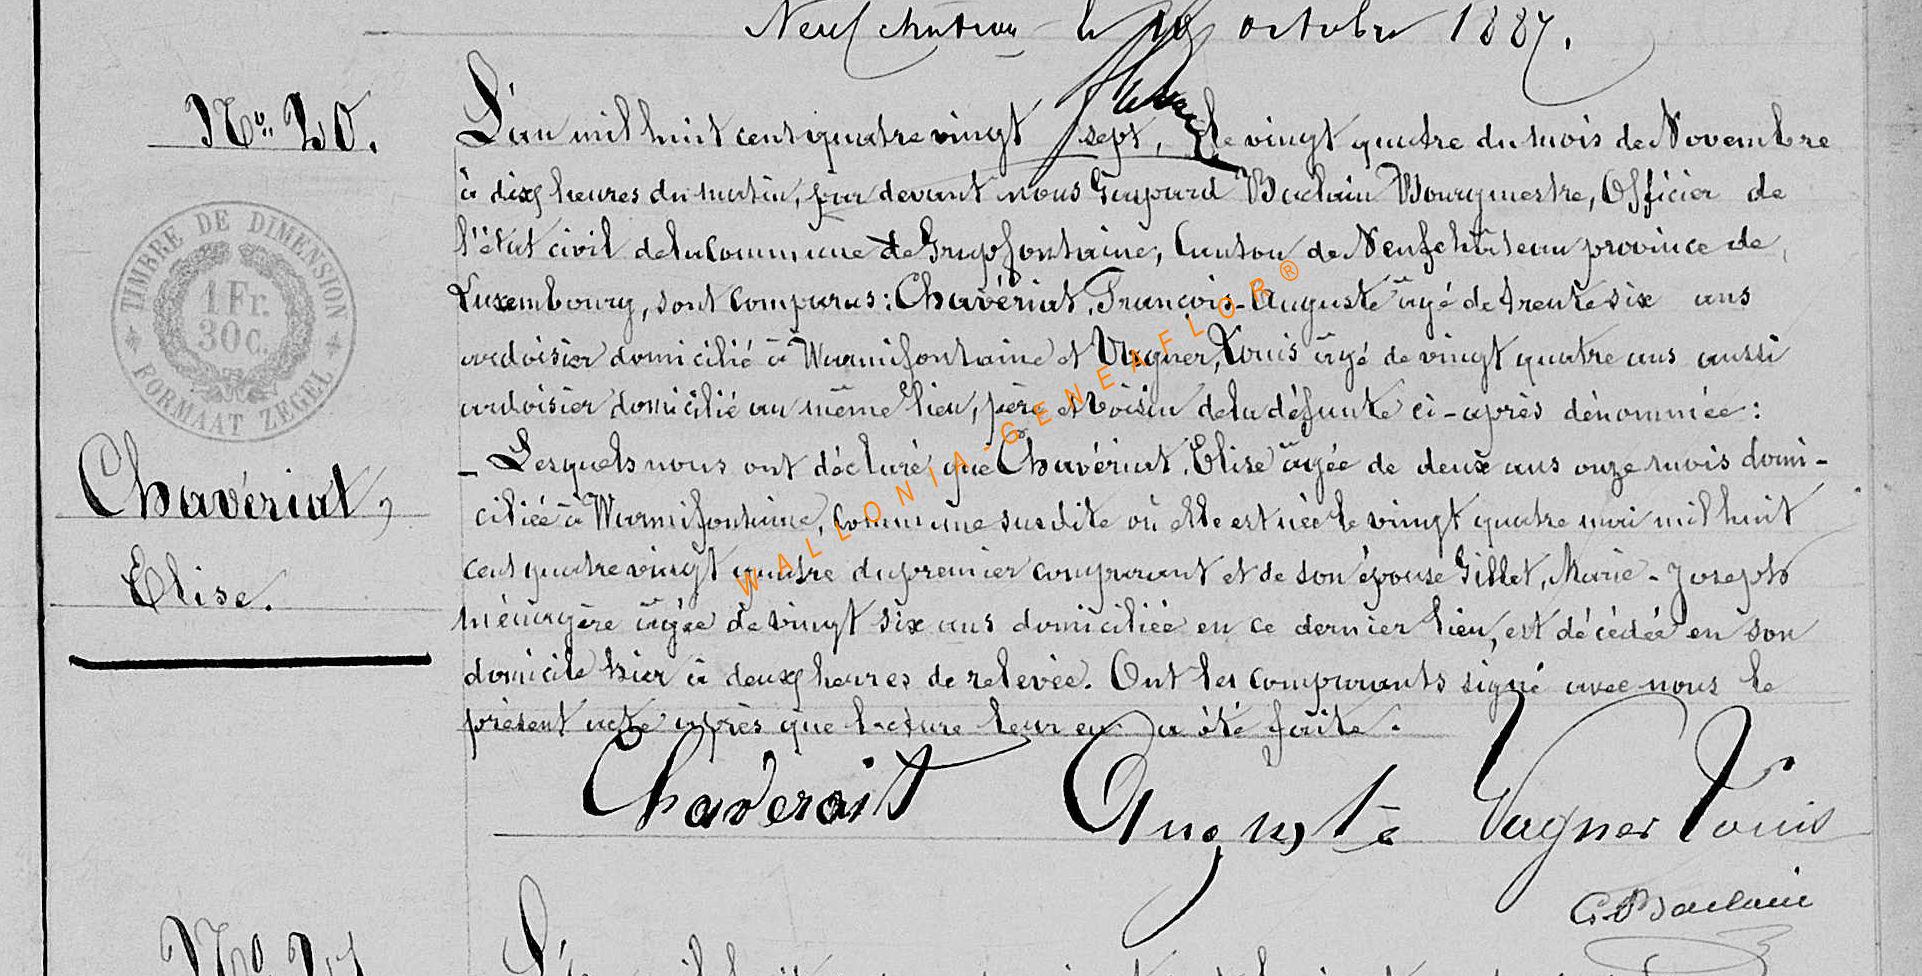 Neufchâteau le 10 octobre 1887.
No. 20.
L'an mil huit cent quatre vingt sept, le vingt quatre du mois de Novembre
à dix heures du matin, par devant nous Gaspard Baclain Bourgmestre, Officier de
l'état civil de la Commune de Grapfontaine, Canton de Neufchâteau province de
Luxembourg, sont comparus: Chavériat, François-Auguste âgé de trente six ans
ardoisier domicilié à Warmifontaine et Vagner, Louis âgé de vingt quatre ans aussi
ardoisier domicilié au même lieu, père et voisin de la défunte ci-après dénommée:
TIMBRE DE DIMENSION
1 Fr.
30 c.
FORMAAT ZEGEL
Chavériat,
Elise.
- Lesquels nous ont déclaré que Chavériat, Elise âgée de deux ans onze mois domi-
ciliée à Warmifontaine, Commune susdite où elle est née le vingt quatre mai mil huit
cent quatre vingt quatre du premier comparant et de son épouse Gillet, Marie-Joseph
ménagère âgée de vingt six ans domiciliée en ce dernier lieu, est décédée en son
domicile hier à deux heures de relevée. Ont les comparants signé avec nous le
présent acte après que lecture leur en a été faite.
WALLONIA GENEAFLOR®
Chaveroit Auguste Vagner Louis
G. Baclain
No
L'an mil huit